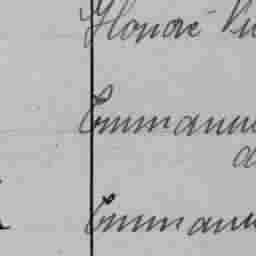 Honoré Vi
Emmanu
d
Emmanu